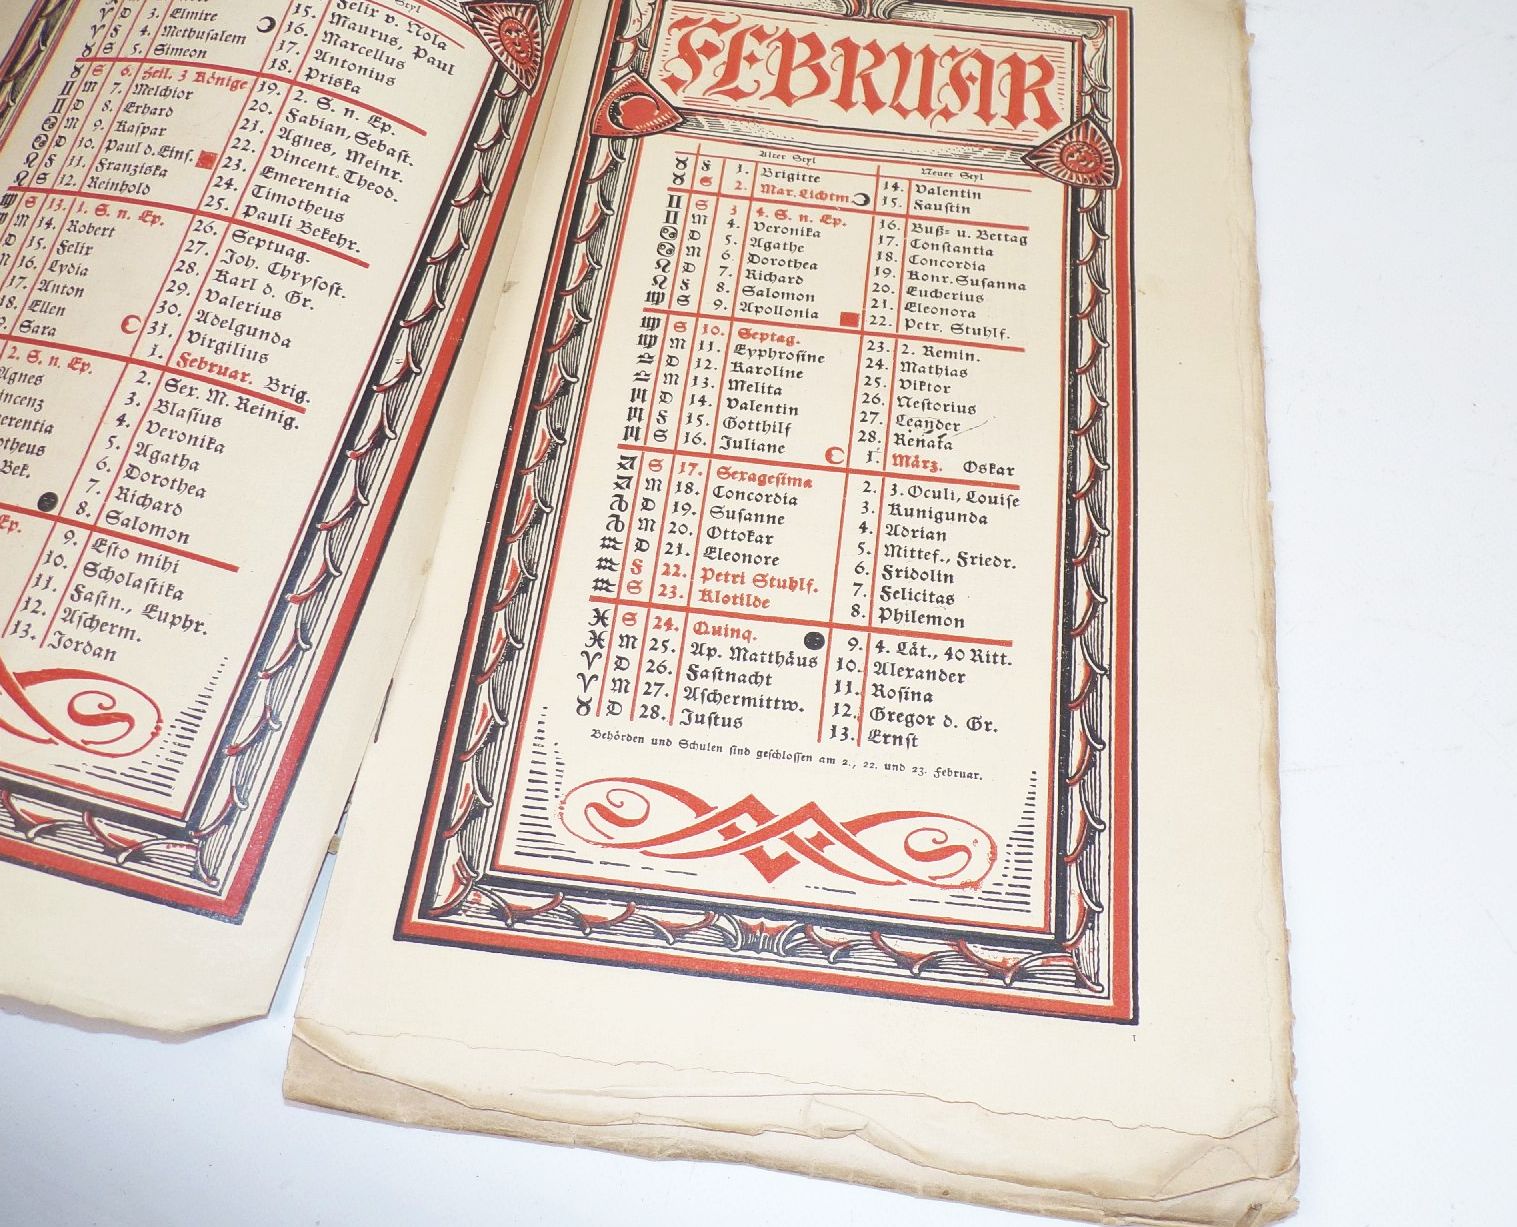 3. Elmire
4. Methusalem
5. Simeon
S 6. Heil. 3 Könige
M 7. Melchior
D 8. Erhard
M 9. Kaspar
D 10. Paul d. Eins.
F 11. Franziska
S 12. Reinhold
S 13. 1. S. n. Ep.
M 14. Robert
D 15. Felix
16. Lydia
17. Anton
18. Ellen
Sara
2. S. n. Ep.
Agnes
Styl
15. Felix v. Nola
16. Maurus, Paul
17. Marcellus
18. Antonius
Priska
19. 2. S. n. Ep.
20. Fabian, Sebast.
21. Agnes, Meinr.
22. Vincent. Theod.
23. Emerentia
24. Timotheus
25. Pauli Bekehr.
26. Septuag.
27. Joh. Chrysost.
28. Karl d. Gr.
29. Valerius
30. Adelgunda
31. Virgilius
1. Februar. Brig.
2. Ser. M. Reinig.
3. Blasius
4. Veronika
5. Agatha
6. Dorothea
7. Richard
8. Salomon
9. Esto mihi
10. Scholastika
11. Fastn., Euphr.
12. Ascherm.
13. Jordan
FEBRUAR
Alter Styl
F 1. Brigitte
S 2. Mar. Lichtm.
S 3 4. S. n. Ep.
M 4. Veronika
D 5. Agathe
M 6. Dorothea
D 7. Richard
F 8. Salomon
S 9. Apollonia
S 10. Septag.
M 11. Eyphrosine
D 12. Karoline
M 13. Melita
D 14. Valentin
F 15. Gotthilf
S 16. Juliane
S 17. Sexagesima
M 18. Concordia
D 19. Susanne
M 20. Ottokar
D 21. Eleonore
F 22. Petri Stuhlf.
S 23. Klotilde
S 24. Quinq.
M 25. Ap. Matthäus
D 26. Fastnacht
M 27. Aschermittw.
D 28. Justus
Neuer Styl
14. Valentin
15. Faustin
16. Buß= u. Bettag
17. Constantia
18. Concordia
19. Konr. Susanna
20. Eucherius
21. Eleonora
22. Petr. Stuhlf.
23. 2. Remin.
24. Mathias
25. Viktor
26. Nestorius
27. Leander
28. Renata
1. März. Oskar
2. 3. Oculi, Louise
3. Kunigunda
4. Adrian
5. Mittef., Friedr.
6. Fridolin
7. Felicitas
8. Philemon
9. 4. Lät., 40 Ritt.
10. Alexander
11. Rosina
12. Gregor d. Gr.
13. Ernst
Behörden und Schulen sind geschlossen am 2., 22. und 23. Februar.
1